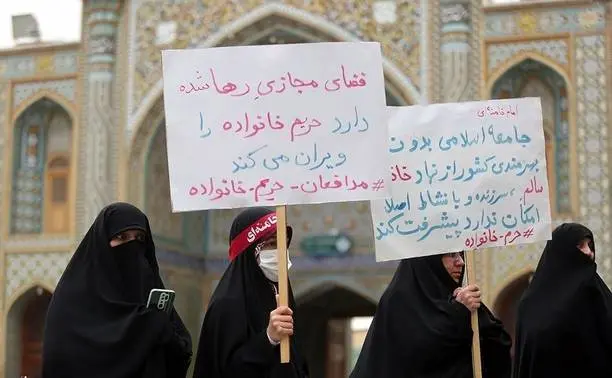 فضای مجازیِ رها شده
دارد حریم خانواده را
ویران می کند
#مدافعان-حریم-خانواده
امام خامنه‌ای:
جامعه اسلامی بدون
بهره‌مندی کشور از نهاد خانه
سالم، سرزنده و با نشاط اصلا
امکان ندارد پیشرفت کند
#حریم-خانواده
خامنه‌ای